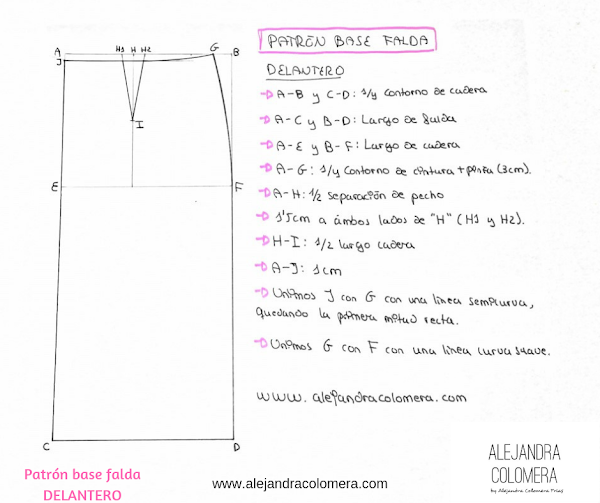 PATRÓN BASE FALDA
DELANTERO
A-B y C-D: 1/4 contorno de cadera
A-C y B-D: Largo de falda
A-E y B-F: Largo de cadera
A-G: 1/4 contorno de cintura + pinza (3cm).
A-H: 1/2 separación de pecho
1'5cm a ambos lados de "H" (H1 y H2).
H-I: 1/2 largo cadera
A-J: 1cm
Unimos J con G con una linea semicurva,
quedando la primera mitad recta.
Unimos G con F con una linea curva suave.
www.alejandracolomera.com
A
H1
H
H2
G
B
J
I
E
F
C
D
Patrón base falda
DELANTERO
www.alejandracolomera.com
ALEJANDRA
COLOMERA
by Alejandra Colomera Frías